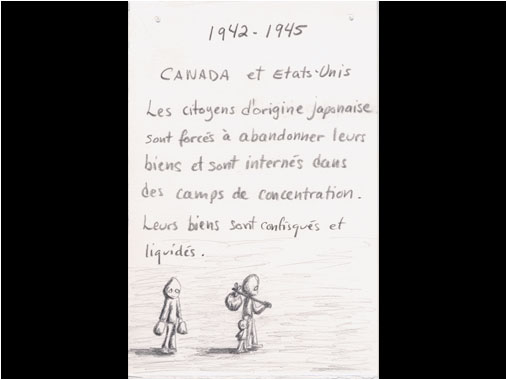 1942-1945
CANADA et Etats-Unis
Les citoyens d'origine japonaise
sont forcés à abandonner leurs
biens et sont internés dans
des camps de concentration.
Leurs biens sont confisqués et
liquidés.